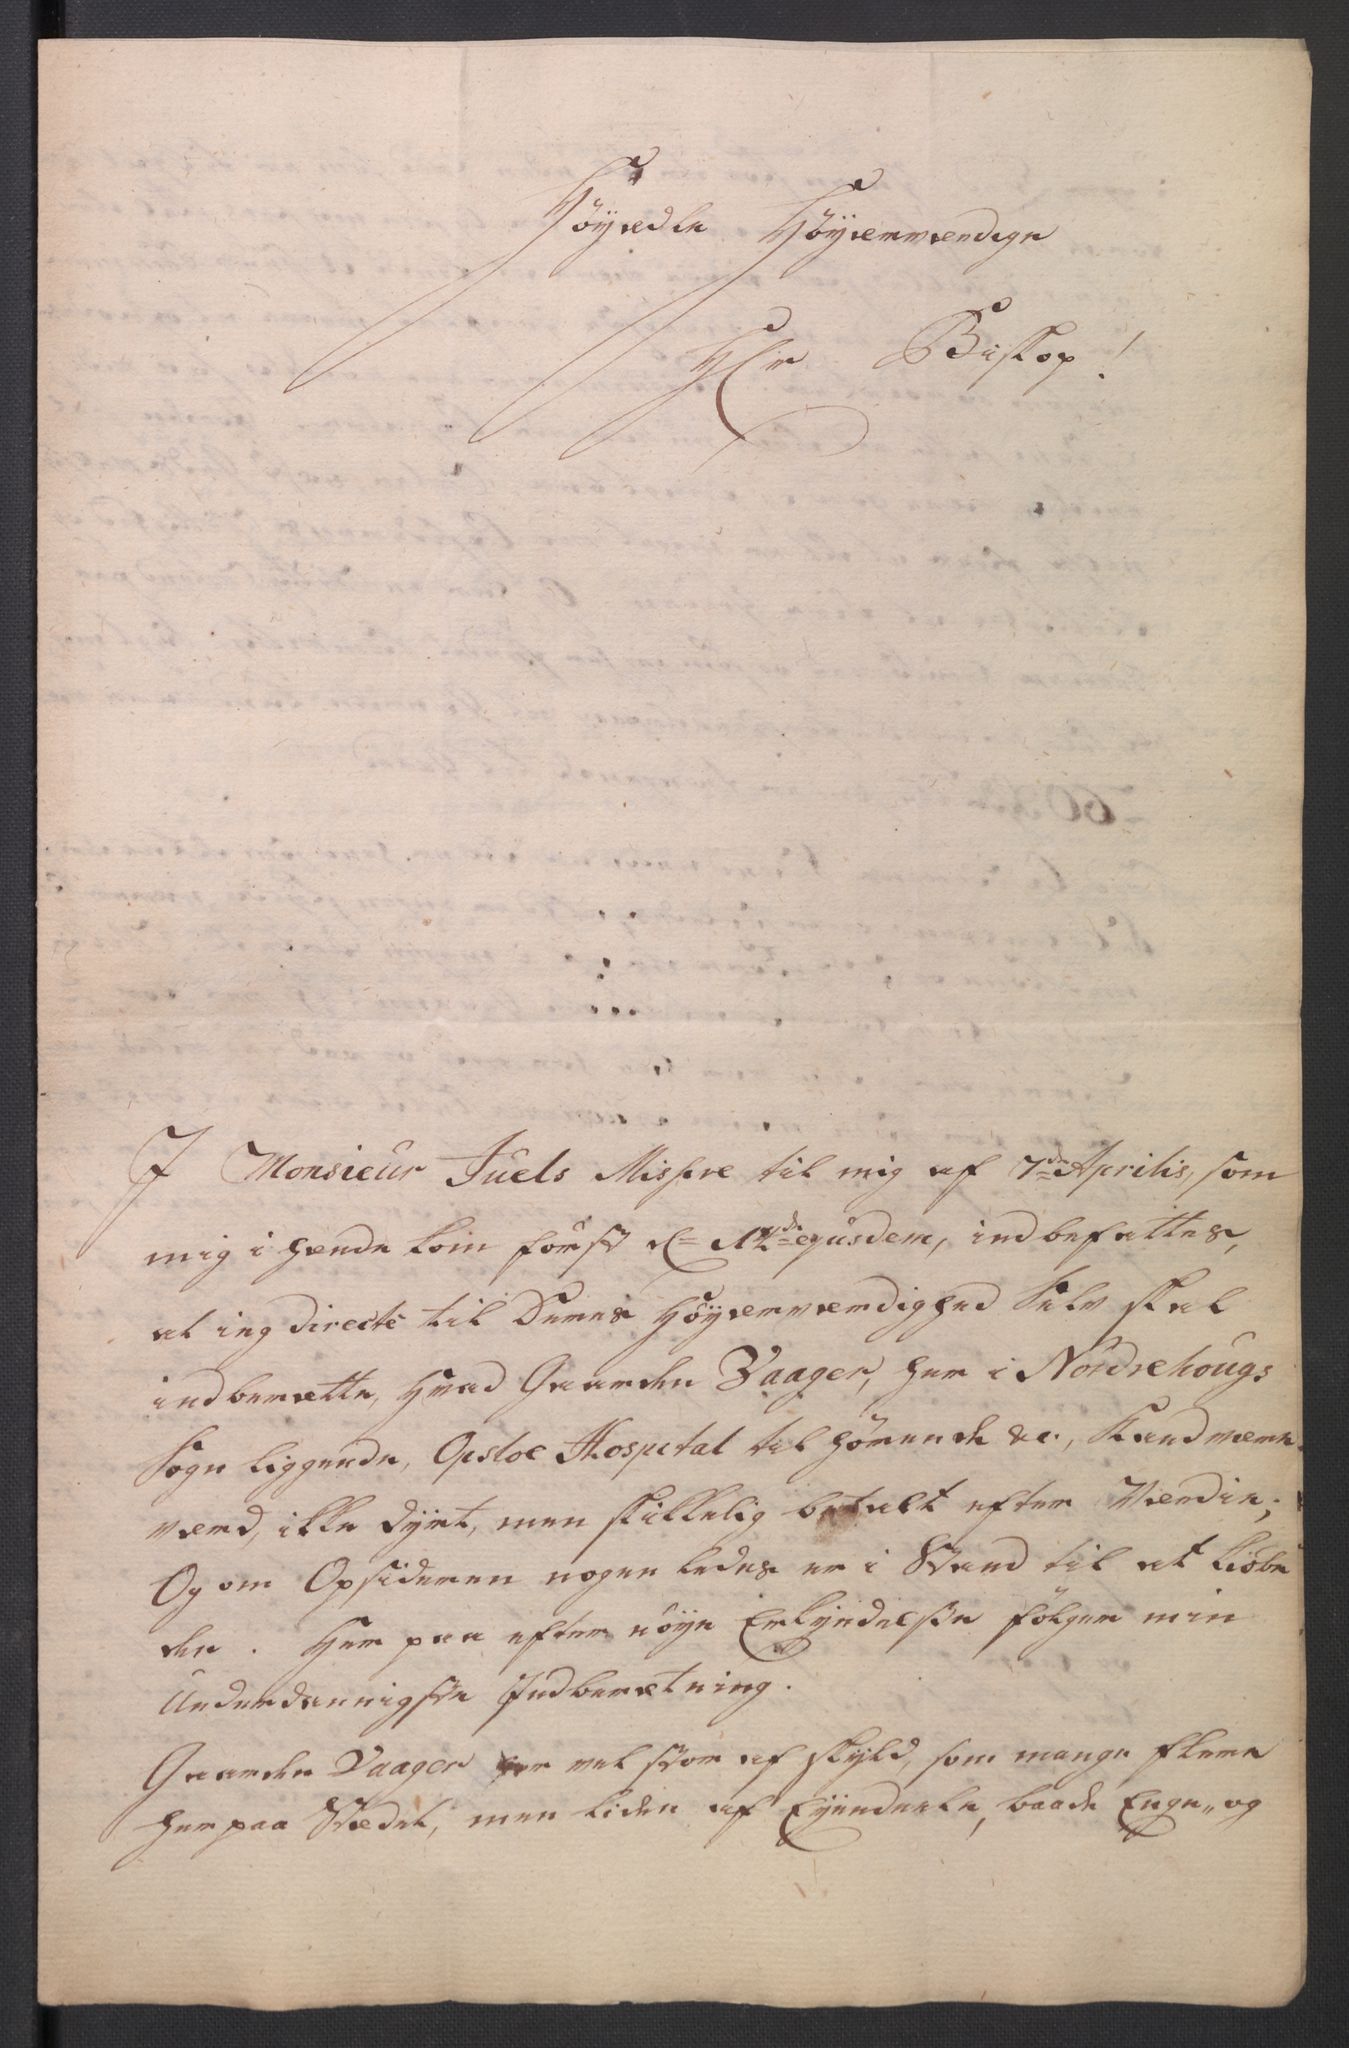 Høyædle Høyærværdige
Hr Biskop!
I Monsieur Juels Missive til mig af 7de Aprilis, som
mig i hænde kom først d= 12de ejusdem, indbefattes,
at ieg directè til Deres Høyærværdighed Selv skal
indberette, hvad Gaarden Vaager, her i Nordrehougs
Sogn liggende, Opsloe Hospital tilhørende &c., Kand være
værd, ikke dyrt, men skikkelig betalt efter Værdie;
Og om Opsideren nogenledes er i Stand til at kiøbe
den. Her paa efter nøye Erkyndelse følger min
Underdannigste Indberetning.
Gaarden Vaager er vel stor af skyld, som mange flere
her paa Stedet, men liden af Eyendeele, baade Enge- og